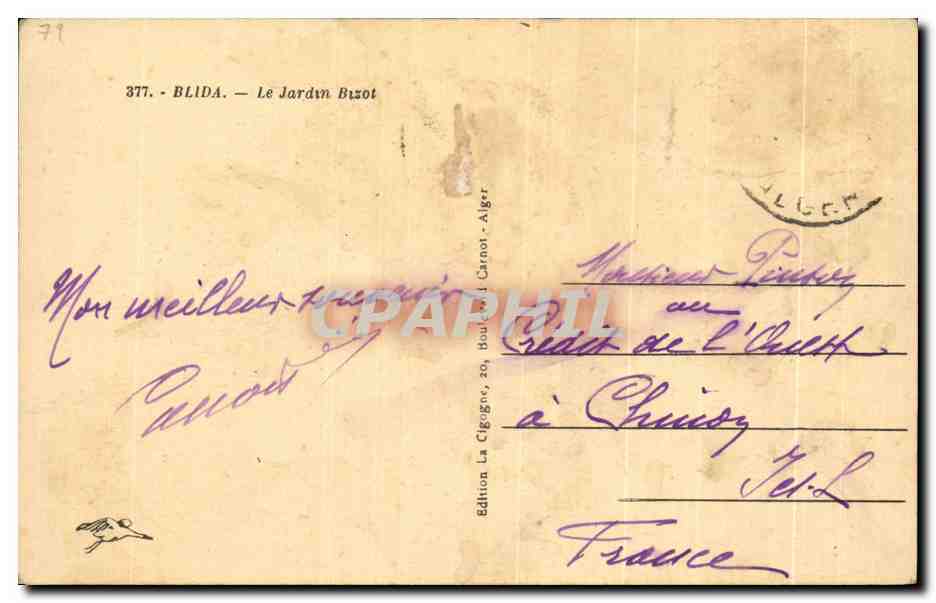 79
377. - BLIDA. — Le Jardin Bizot
ALGER
Mon meilleur souvenir
CPAPHIL
Edition La Cigogne, 20, Boulevard Carnot - Alger
Monsieur
au
Crédit de l'Ouest
à Chinon
I et-L
France